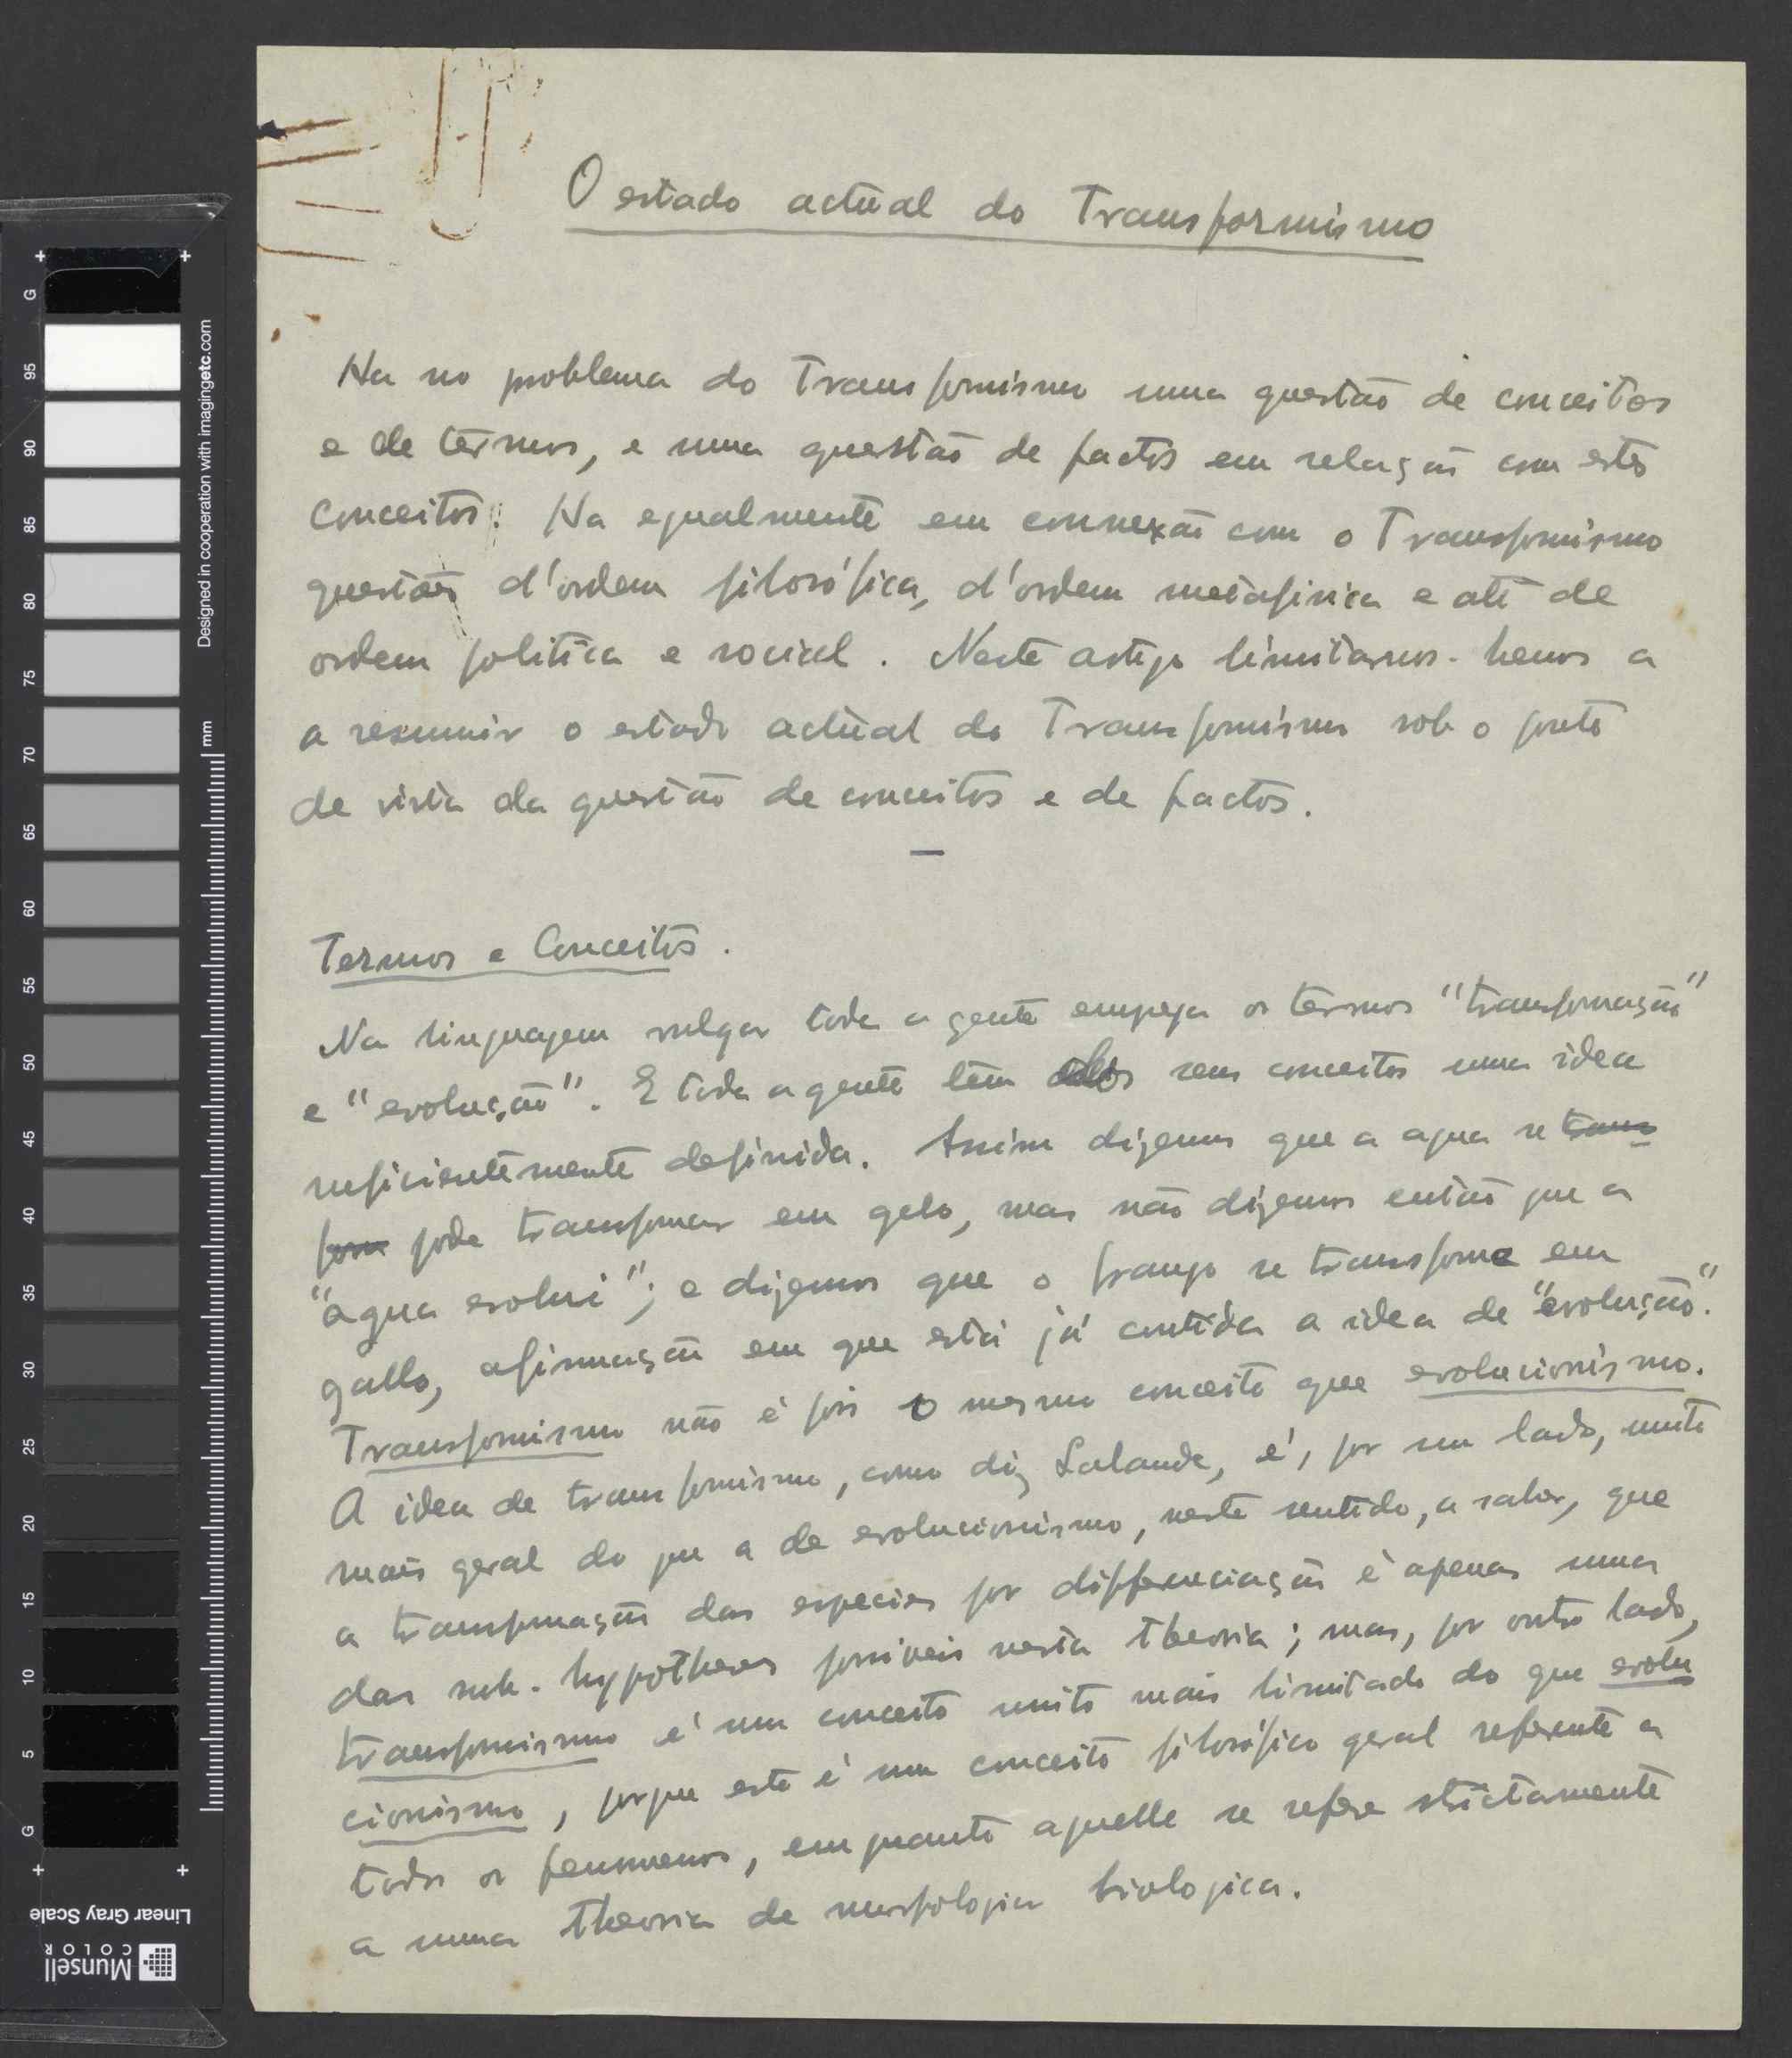 O estado actual do Transformismo
Ha no problema do Transformismo uma questão de conceitos
e de termos, e uma questão de factos em relação com estes
conceitos. Ha egualmente em connexão com o Transformismo
questões d'ordem filosófica, d'ordem metafisica e até de
ordem politica e social. Neste artigo limitarnos-hemos a
a resumir o estado actual do Transformismo sob o ponto
de vista da questão de conceitos e de factos.
—
Termos e Conceitos.
Na linguagem vulgar toda a gente emprega os termos "transformação"
e "evolução". E toda a gente tem dos seus conceitos uma idea
suficientemente definida. Assim dizemos que a agua se trans
form pode transformar em gelo, mas não dizemos então que a
"agua evolui"; e dizemos que o frango se transforma em
gallo, afirmação em que está já contida a idea de "evolução".
Transformismo não é pois o mesmo conceito que evolucionismo.
A idea de transformismo, como diz Lalande, é, por um lado, muito
mais geral do que a de evolucionismo, neste sentido, a saber, que
a transformação das especies por differenciação é apenas uma
das sub-hypotheses possiveis nesta theoria; mas, por outro lado,
transformismo é um conceito muito mais limitado do que evolu
cionismo, porque este é um conceito filosófico geral referente a
todos os fenomenos, emquanto aquelle se refere strictamente
a uma theoria de morfologia biologica.
Designed in cooperation with imagingetc.com
mm
G
95
90
85
80
75
70
65
60
55
50
45
40
35
30
25
20
15
10
5
G
Linear Gray Scale
Munsell
COLOR